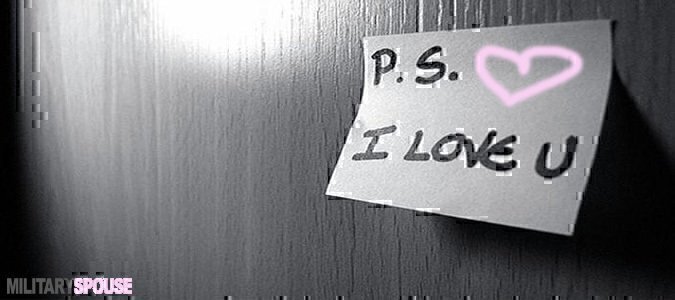 P.S.
I LOVE U
MILITARYSPOUSE